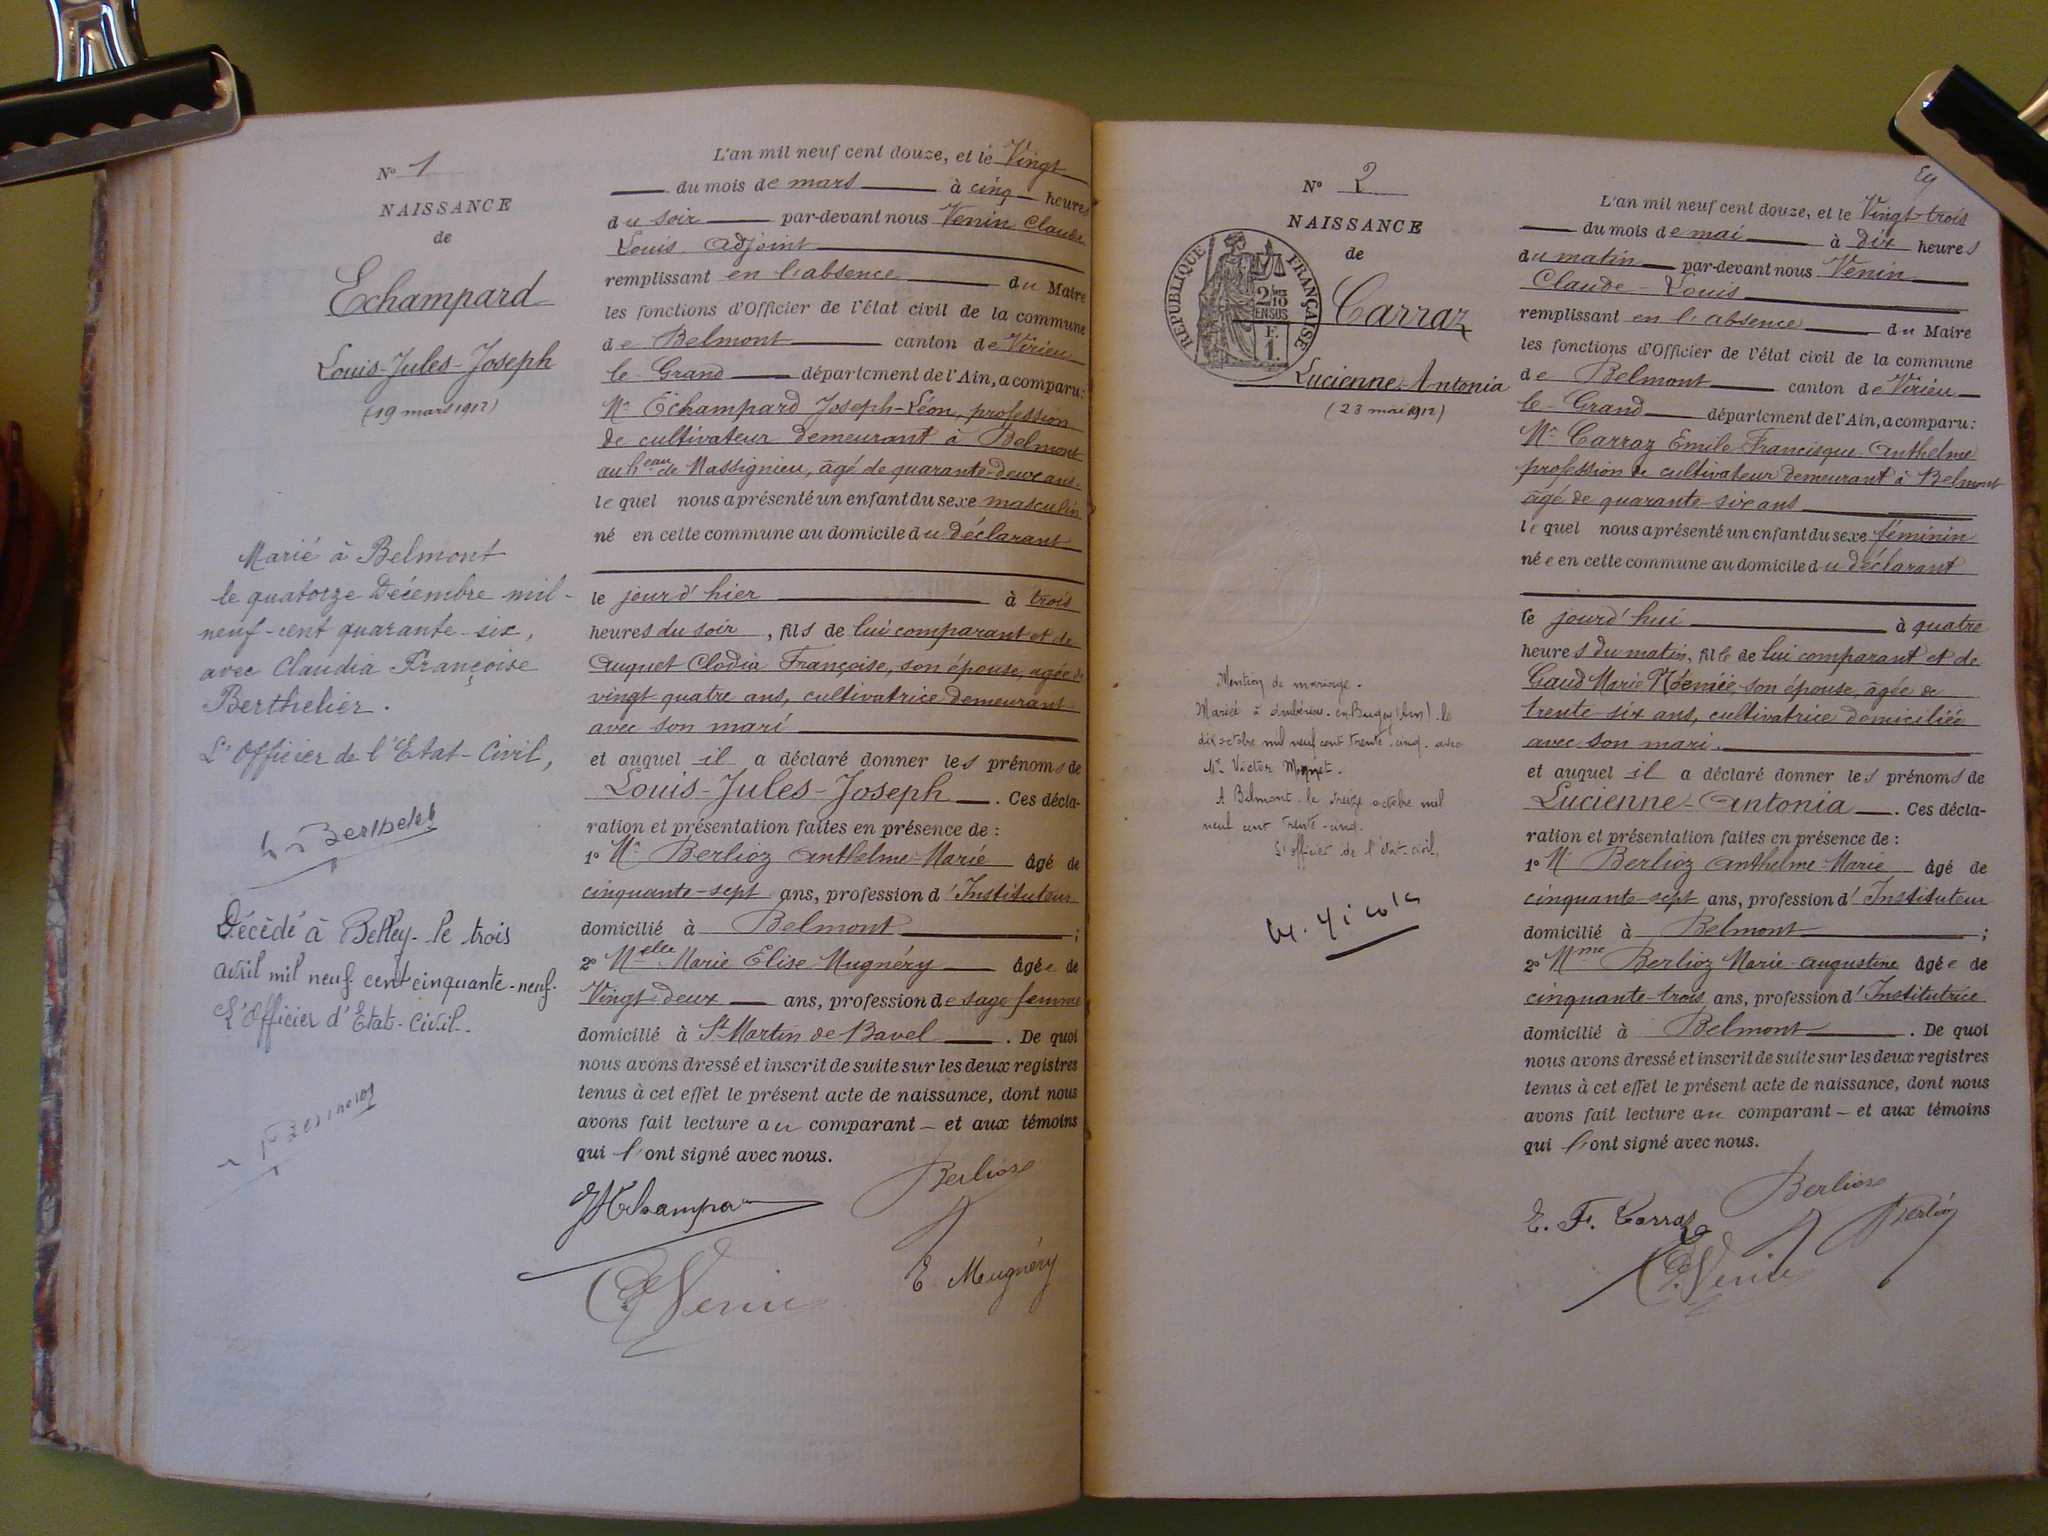 N° 1
NAISSANCE
de
Echampard
Louis-Jules-Joseph
(19 mars 1912)
Marié à Belmont
le quatorze Décembre mil-
neuf-cent quarante-six,
avec Claudia Françoise
Berthelier.
L'Officier de l'Etat-Civil,
Décédé à Belley le trois
avril mil neuf cent cinquante-neuf.
L'Officier d'Etat-Civil.
L'an mil neuf cent douze, et le Vingt
du mois de mars à cinq heures
du soir par-devant nous Venin Claude
Louis Adjoint
remplissant en l'absence du Maire
les fonctions d'Officier de l'état civil de la commune
de Belmont canton de Virieu
le-Grand département de l'Ain, a comparu:
Mr Echampard Joseph-Léon, profession
de cultivateur demeurant à Belmont
au heau de Massignieu, âgé de quarante-deux ans.
lequel nous a présenté un enfant du sexe masculin
né en cette commune au domicile du déclarant
le jourd'hier à trois
heures du soir, fils de lui comparant et de
Auguet Clodia Françoise, son épouse, agée de
vingt quatre ans, cultivatrice demeurant
avec son mari
et auquel il a déclaré donner les prénoms de
Louis-Jules-Joseph. Ces décla-
ration et présentation faites en présence de :
1° Mr Berlioz Anthelme-Marie âgé de
cinquante-sept ans, profession d'Instituteur
domicilié à Belmont ;
2° Melle Marie Elise Mugnéry âgée de
Vingt-deux ans, profession de sage femme
domicilié à St Martin de Bavel. De quoi
nous avons dressé et inscrit de suite sur les deux registres
tenus à cet effet le présent acte de naissance, dont nous
avons fait lecture au comparant – et aux témoins
qui l'ont signé avec nous.
Berlioz
E. Mugnéry
Venin
N° 2
NAISSANCE
de
RÉPUBLIQUE FRANÇAISE
2/10
EN SUS
F.
1.
Carraz
Lucienne-Antonia
(23 mai 1912)
Mention de mariage.
Mariée à Ambérieu-en-Bugey (Ain) le
dix octobre mil neuf cent trente-cinq avec
Mr Victor
A Belmont le treize octobre mil
neuf cent trente-cinq.
L'officier de l'état-civil,
L'an mil neuf cent douze, et le Vingt-trois
du mois de mai à dix heures
du matin par-devant nous Venin
Claude-Louis
remplissant en l'absence du Maire
les fonctions d'Officier de l'état civil de la commune
de Belmont canton de Virieu
le-Grand département de l'Ain, a comparu:
Mr Carraz Emile-Francisque-Anthelme
profession de cultivateur demeurant à Belmont
âgé de quarante-six ans
lequel nous a présenté un enfant du sexe féminin
née en cette commune au domicile du déclarant
le jourd'hui à quatre
heures du matin, fille de lui comparant et de
Gaud Marie Noémie son épouse, âgée de
trente-six ans, cultivatrice domiciliée
avec son mari.
et auquel il a déclaré donner les prénoms de
Lucienne-Antonia. Ces décla-
ration et présentation faites en présence de :
1° Mr Berlioz Anthelme-Marie âgé de
cinquante-sept ans, profession d'Instituteur
domicilié à Belmont ;
2° Mme Berlioz Marie-Augustine âgée de
cinquante-trois ans, profession d'Institutrice
domicilié à Belmont. De quoi
nous avons dressé et inscrit de suite sur les deux registres
tenus à cet effet le présent acte de naissance, dont nous
avons fait lecture au comparant – et aux témoins
qui l'ont signé avec nous.
Berlioz
E. F. Carraz
Berlioz
Venin